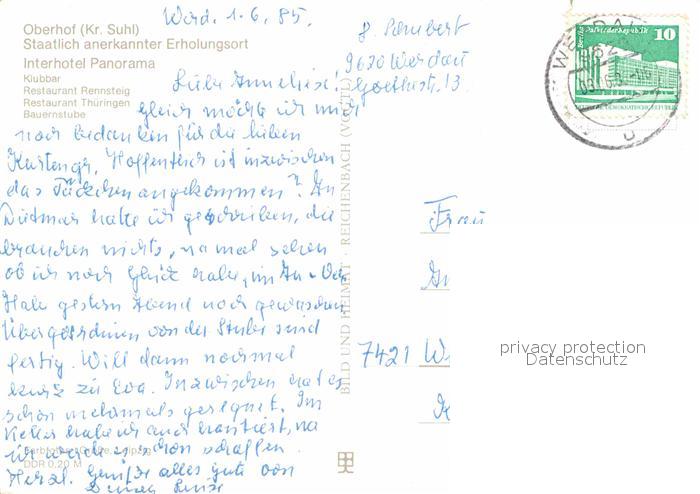 Oberhof (Kr. Suhl)
Staatlich anerkannter Erholungsort
Interhotel Panorama
Klubbar
Restaurant Rennsteig
Restaurant Thüringen
Bauernstube
Werd. 1.6.85.
9620 Werdau
Goethestr. 13
Liebe Anneliese!
Gleich möchte ich mich
noch bedanken für die lieben
Kartengr. Hoffentlich ist inzwischen
das Päckchen angekommen? An
Dietmar hatte ich geschrieben, die
brauchen nichts, na mal sehen
ob ich noch Glück habe, im An-
Habe gestern Abend noch gewaschen
Übergardinen von der Stube sind
fertig. Will dann nochmal
kurz zu Eva. Inzwischen hat es
schon mehrmals geregnet. Im
Keller habe ich auch hantiert, na
ich werde es schon schaffen.
Herzl. Grüße alles gute von
Deiner
Frau
7421 W
BILD UND HEIMAT · REICHENBACH (VOGTL)
DDR 0,20 M
10
Palast der Republik
Berlin
WERDAU
962
privacy protection
Datenschutz